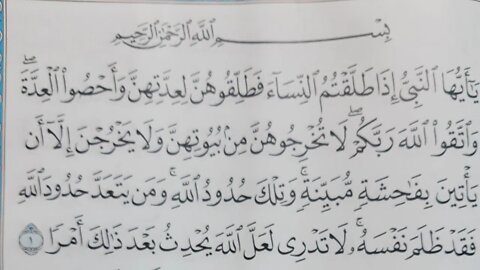 بِسْمِ ٱللَّهِ ٱلرَّحْمَٰنِ ٱلرَّحِيمِ
يَٰٓأَيُّهَا ٱلنَّبِىُّ إِذَا طَلَّقْتُمُ ٱلنِّسَآءَ فَطَلِّقُوهُنَّ لِعِدَّتِهِنَّ وَأَحْصُوا۟ ٱلْعِدَّةَۖ
وَٱتَّقُوا۟ ٱللَّهَ رَبَّكُمْۖ لَا تُخْرِجُوهُنَّ مِنۢ بُيُوتِهِنَّ وَلَا يَخْرُجْنَ إِلَّآ أَن
يَأْتِينَ بِفَٰحِشَةٍ مُّبَيِّنَةٍۚ وَتِلْكَ حُدُودُ ٱللَّهِۚ وَمَن يَتَعَدَّ حُدُودَ ٱللَّهِ
فَقَدْ ظَلَمَ نَفْسَهُۥۚ لَا تَدْرِى لَعَلَّ ٱللَّهَ يُحْدِثُ بَعْدَ ذَٰلِكَ أَمْرًا ١